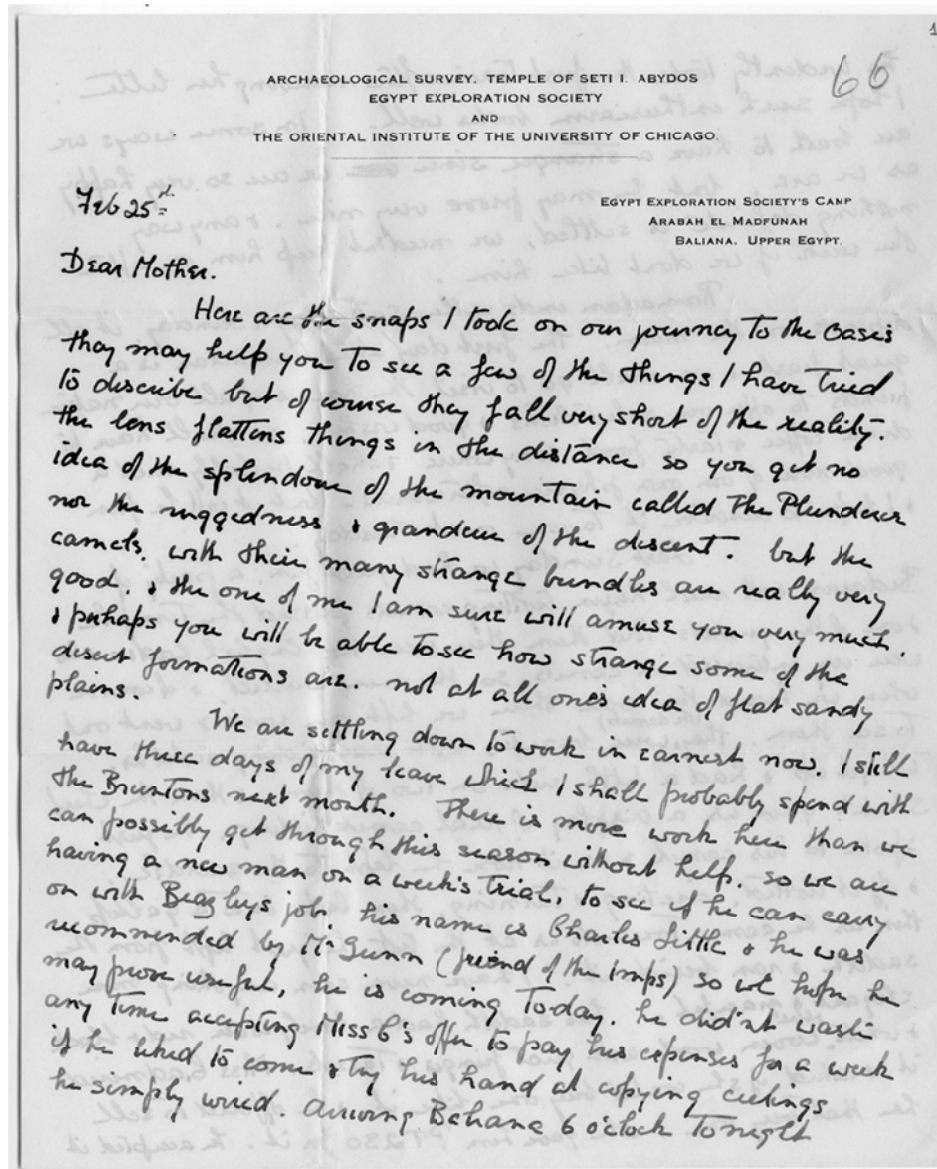 1
66
ARCHAEOLOGICAL SURVEY. TEMPLE OF SETI I. ABYDOS
EGYPT EXPLORATION SOCIETY
AND
THE ORIENTAL INSTITUTE OF THE UNIVERSITY OF CHICAGO.
Feb 25th
EGYPT EXPLORATION SOCIETY'S CAMP
ARABAH EL MADFUNAH
BALIANA. UPPER EGYPT.
Dear Mother.
Here are the snaps I took on our journey to the Oasis
they may help you to see a few of the things I have tried
to describe but of course they fall very short of the reality.
the lens flattens things in the distance so you get no
idea of the splendour of the mountain called The Plunderer
nor the ruggedness & grandeur of the descent. but the
camels, with their many strange bundles are really very
good. & the one of me I am sure will amuse you very much.
& perhaps you will be able to see how strange some of the
desert formations are. not at all one's idea of flat sandy
plains.
We are settling down to work in earnest now. I still
have three days of my leave which I shall probably spend with
the Bruntons next month. There is more work here than we
can possibly get through this season without help. so we are
having a new man on a week's trial, to see if he can carry
on with Beazleys job his name is Charles Little & he was
recommended by Mr Gunn (friend of the Imps) so we hope he
may prove useful, he is coming today. he did'nt waste
any time accepting Miss C's offer to pay his expenses for a week
if he liked to come & try his hand at copying ceilings
he simply wired. Arriving Baliana 6 o'clock tonight